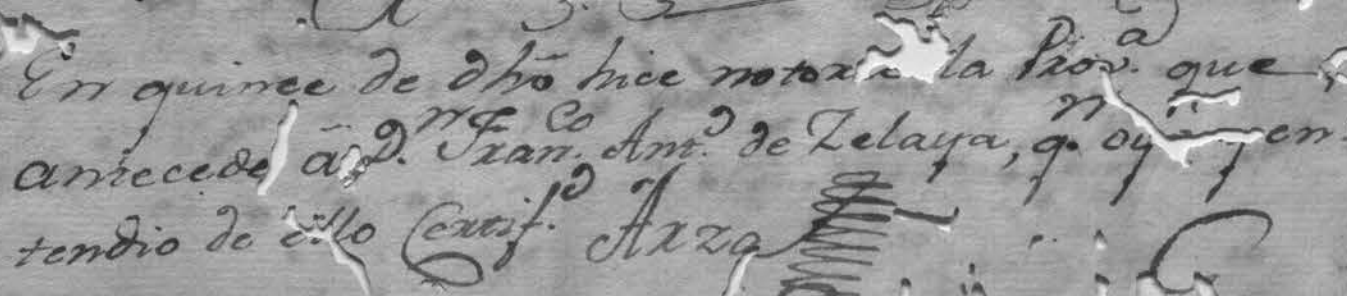 En quince de dho hice notoria la Prov.a que
antecede a D.n Fran.co Ant.o de Zelaya, q.n oyo y en
tendio de ello Certif.o Arza